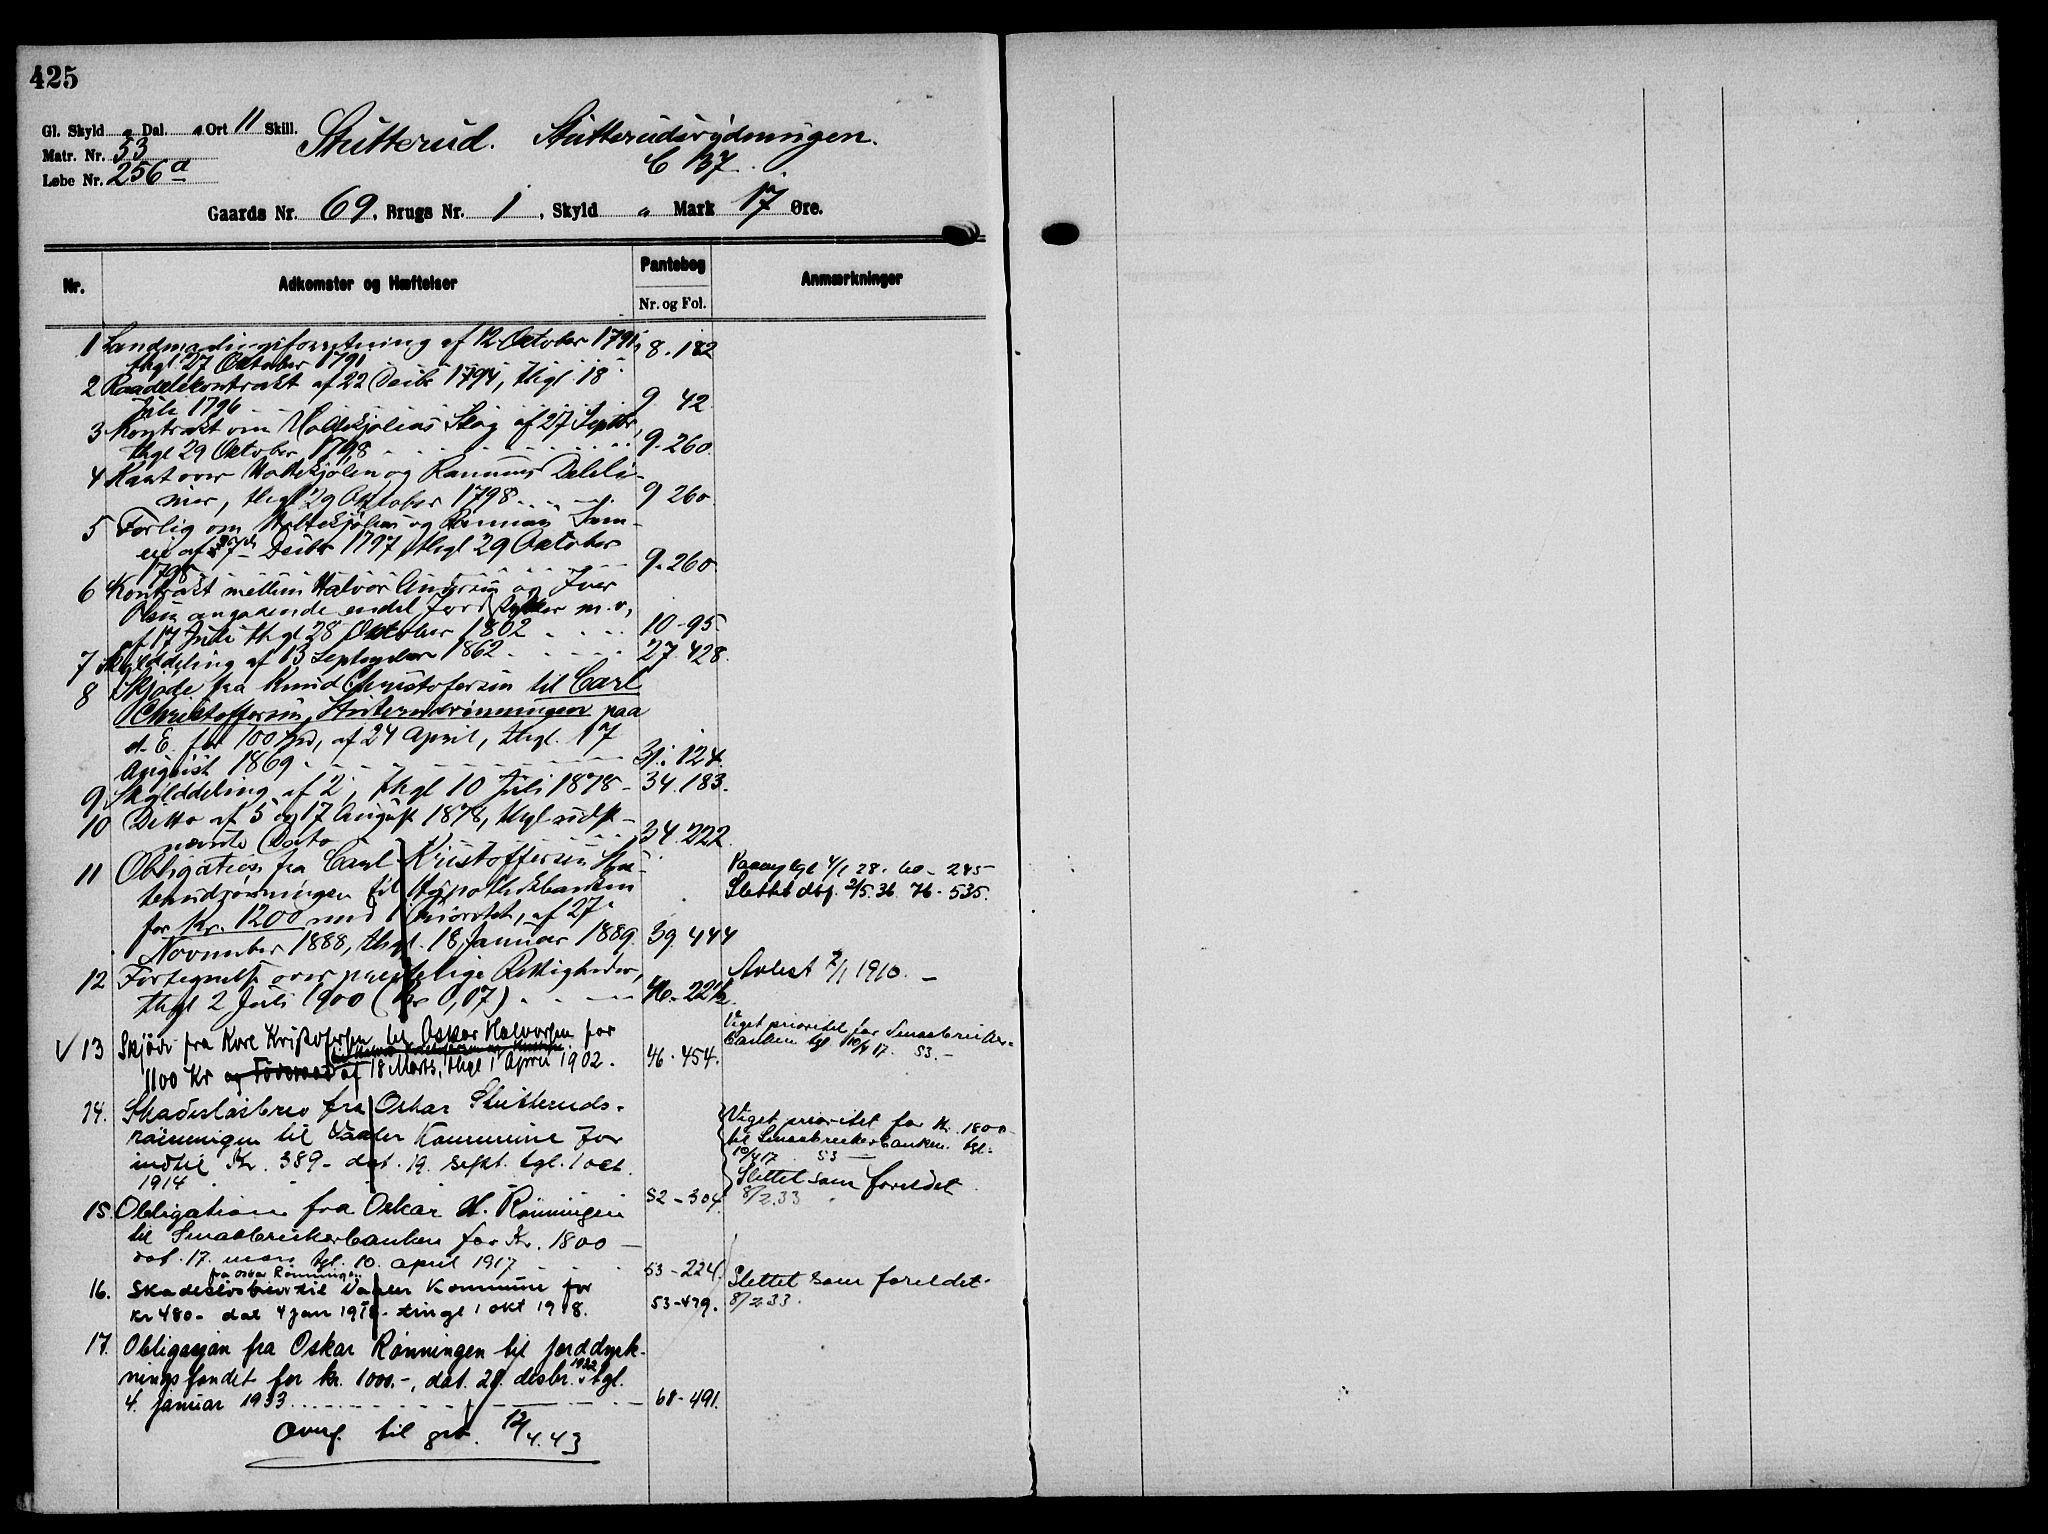 425
Gl. Skyld „ Dal. „ Ort 11 Skill. Stutterud. Stutterudsrydningen.
Matr. Nr. 53
Løbe Nr. 256a
C 137.
Gaards Nr. 69, Brugs Nr. 1, Skyld „ Mark 17 Øre.
Nr. Adkomster og Hæftelser Pantebog Nr. og Fol. Anmærkninger
1 af 12 Oktober 1791,
thgl 27 Oktober 1791 8. 182
2 Raadelekontrakt af 22 Decbr 1794, thgl 18
Juli 1796 9 42.
3 Kontrakt om Skog af 27 Septbr,
thgl 29 Oktober 1798 9. 260.
4 Kart over og Deleli-
nier, thgl 29 Oktober 1798 9 260.
5 Forlig om og Sam-
eie af Decbr 1797, thgl 29 Oktober
1798 9. 260.
6 Kontrakt mellem Halvor og Iver
Olsen angaaende endel Jordstykker m. v,
af 17 Juli thgl 28 Oktober 1802 10-95.
7 Skylddeling af 13 September 1862 27. 428.
8 Skjøde fra Knud Christofersen til Carl
Christoffersen, paa
d. E. for 100 Spd, af 24 April, thgl. 17
August 1869 31. 124.
9 Skylddeling af 2, thgl 10 Juli 1878 34. 183.
10 Ditto af 5 og 17 August 1878, thgl sidst-
nævnte Dato 34. 222.
11 Obligation fra Carl Kristoffersen Stut-
terudrønningen til Hypothekbanken
for Kr. 1200 med 1 Prioritet, af 27
November 1888, thgl. 18 Januar 1889. 39. 444
4/1 28. 60 - 245
Slettet 2/5. 36. 76 - 535.
12 Fortegnelse over Rettigheder,
thgl 2 Juli 1900 (Kr 0,07)
Avlest 7/1 1910.
✓ 13 Skjøde fra Kore Kristofersen til Oskar Halvorsen for
1100 Kr og Føderaad af 18 Marts, thgl 1 April 1902. 46. 454.
Viget prioritet for Smaabruker-
banken tgl 10/4 17. 53.
14. Skadesløsbrev fra Oskar Stutteruds-
rønningen til Vaaler Kommune for
indtil Kr. 389.- dat. 19. sept. tgl. 1 oct.
1914 52 - 304.
Viget prioritet for Kr. 1800
til Smaabrukerbanken. tgl.
10/4 17 53
Slettet som foreldet
8/2.33
15. Obligation fra Oskar H. Rønningen
til Smaabrukerbanken for Kr. 1800
dat. 17. mars tgl. 10. april 1917 53 - 224.
fra Oskar Rønningen
16. Skadesløsbrev til Vaaler Kommune for
kr 480.- dat 4 jan 1918 - tingl 1 okt 1918. 53-479.
Slettet som foreldet.
8/2 33.
17. Obligasjon fra Oskar Rønningen til jorddyrk-
ningsfondet for kr. 1000.-, dat. 28. desbr. 1932 tgl.
4. januar 1933 68 - 491.
Overf. til grb. 12/4.43